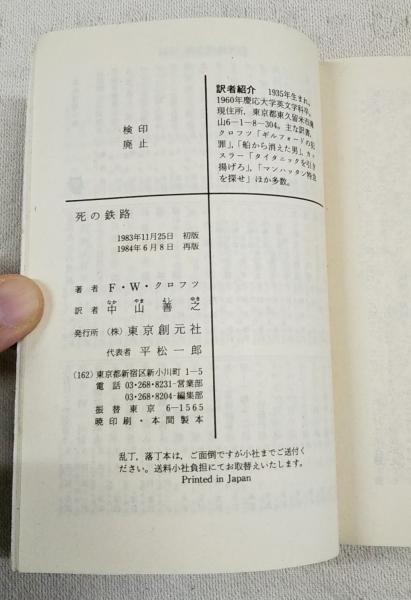 訳者紹介 1935年生まれ。
1960年慶応大学英文学科卒。
現住所，東京都東久留米市滝
山6-1-8-304。主な訳書，
クロフツ「ギルフォードの犯
罪」，「船から消えた男」，カッ
スラー「タイタニックを引き
揚げろ」，「マンハッタン特急
を探せ」ほか多数。
検印
廃止
死の鉄路
1983年11月25日 初版
1984年6月8日 再版
著者 F・W・クロフツ
なか やま よし ゆき
訳者 中山善之
発行所 (株) 東京創元社
代表者 平松一郎
(162) 東京都新宿区新小川町 1-5
電話 03・268・8231-営業部
03・268・8204-編集部
振替東京 6-1565
暁印刷・本間製本
乱丁，落丁本は，ご面倒ですが小社までご送付く
ださい。送料小社負担にてお取替えいたします。
Printed in Japan